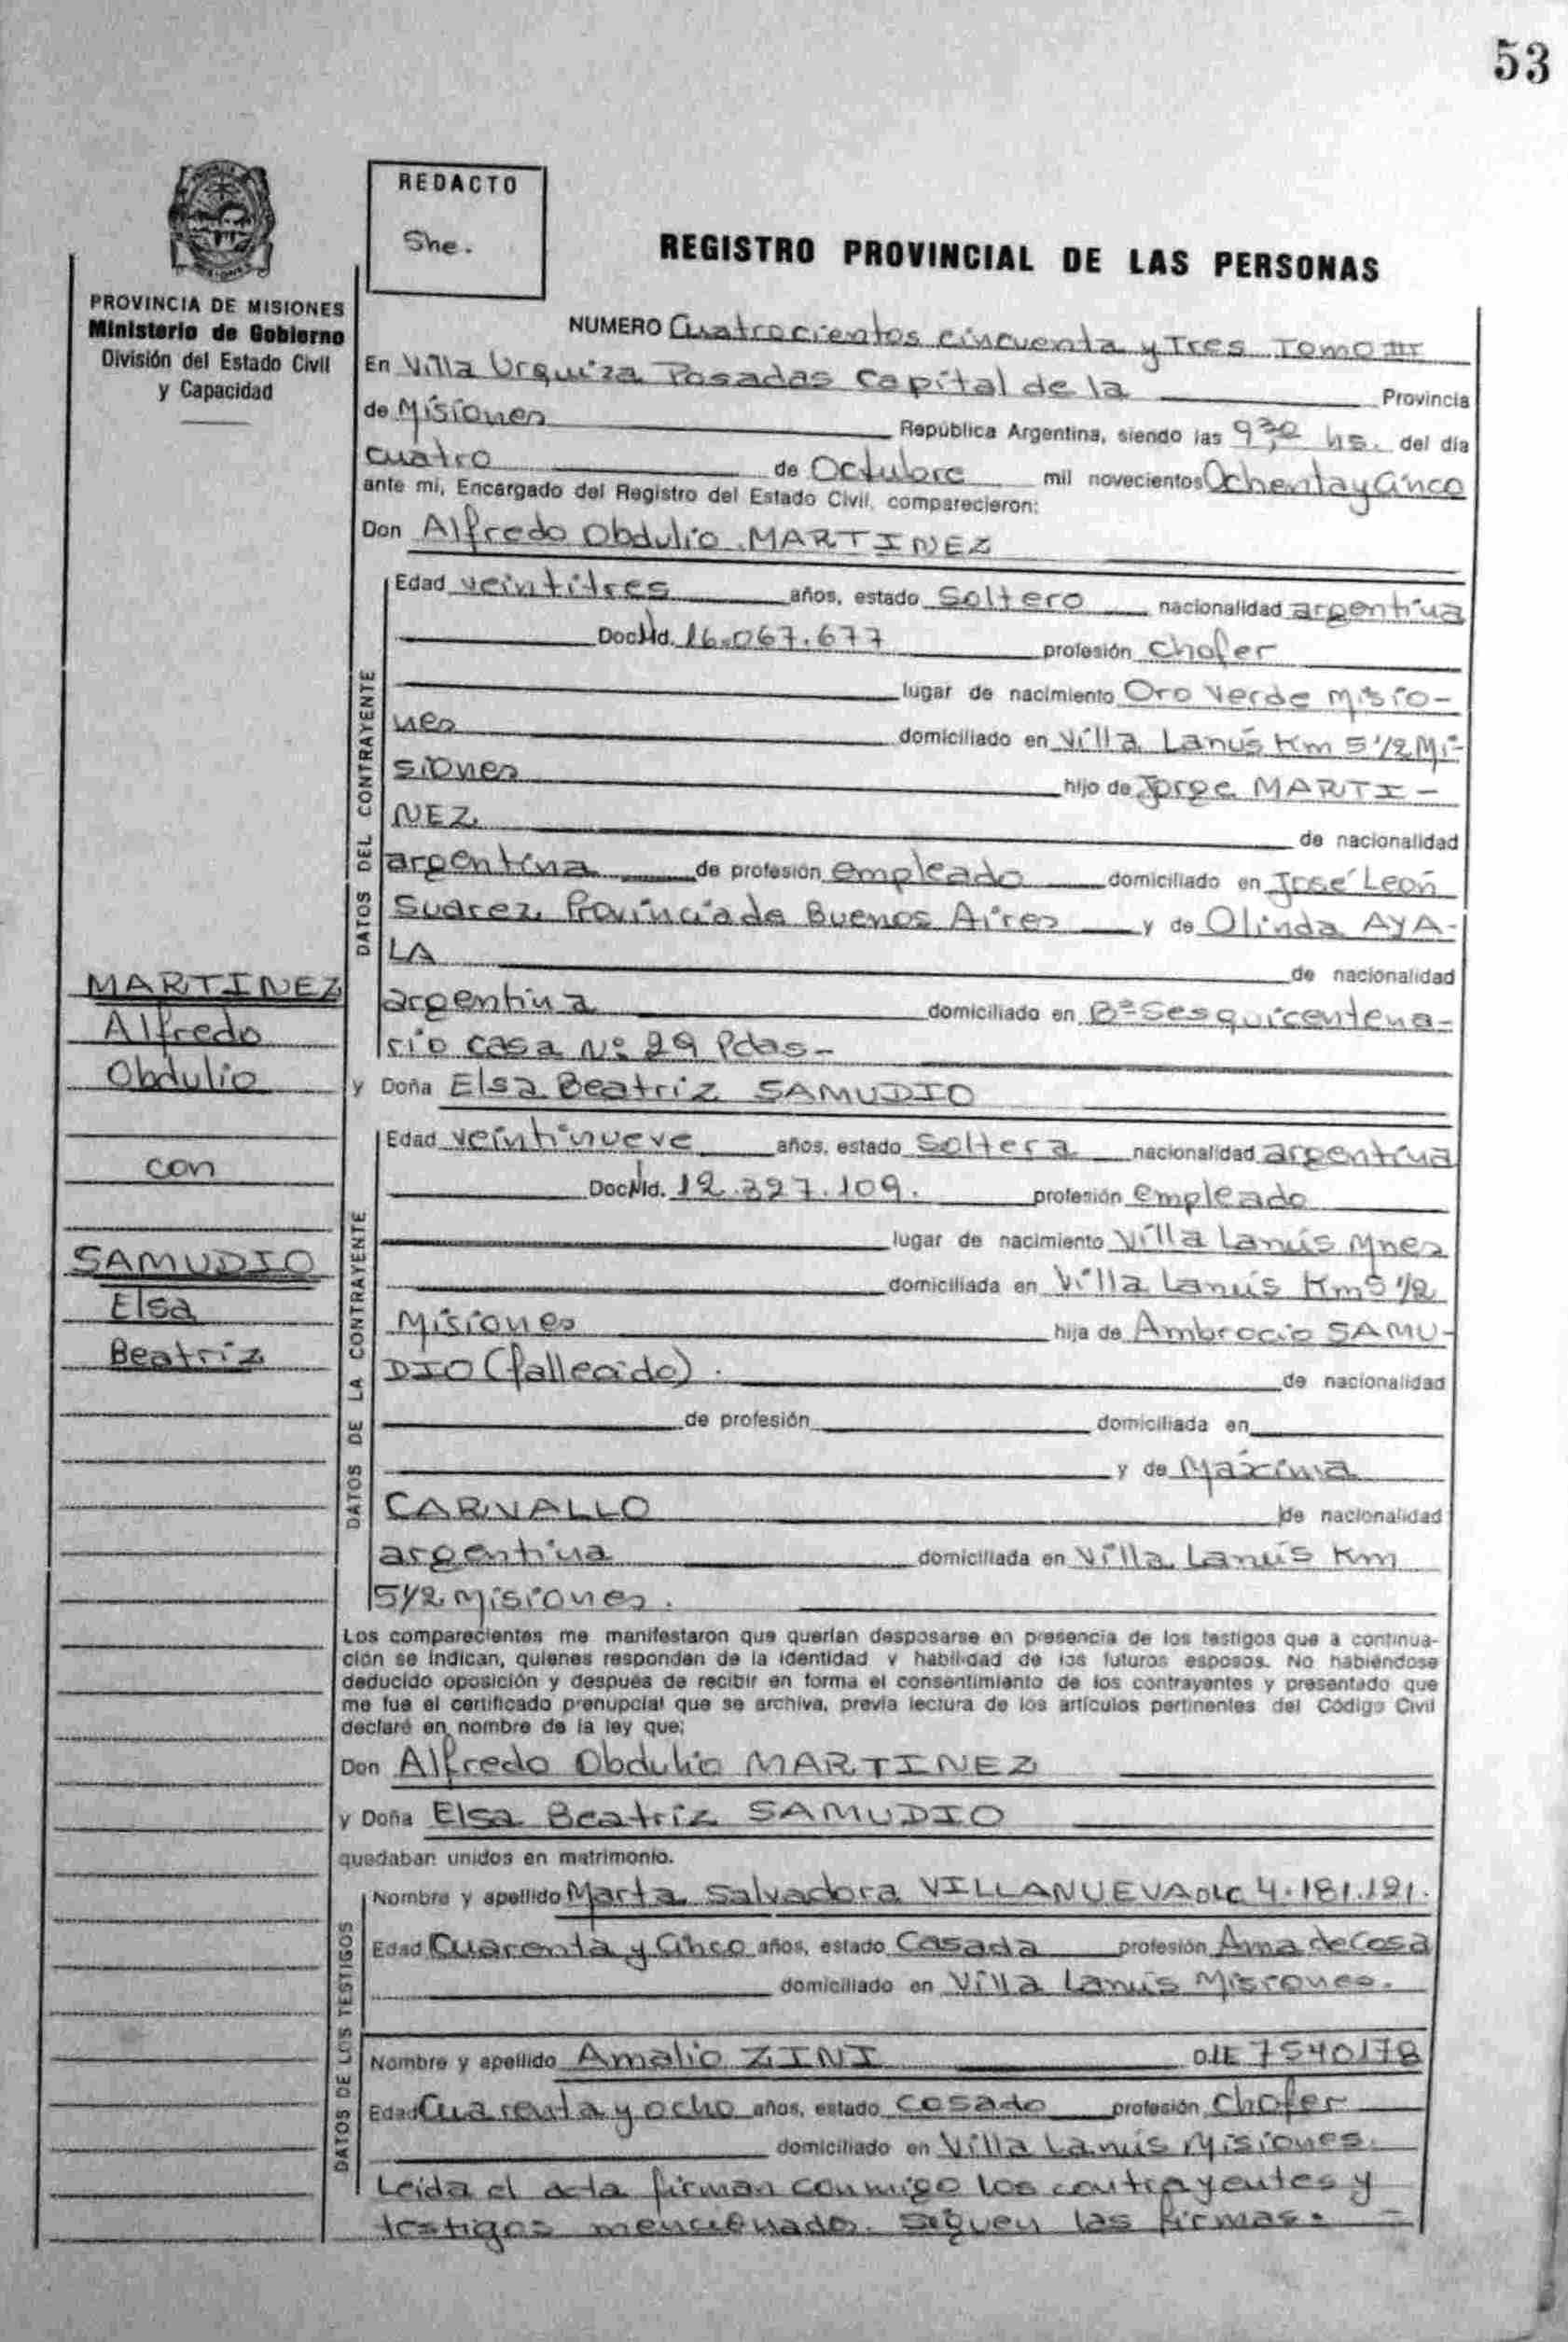 53
REDACTO
She.
REGISTRO PROVINCIAL DE LAS PERSONAS
PROVINCIA DE MISIONES
Ministerio de Gobierno
División del Estado Civil
y Capacidad
NUMERO Cuatrocientos cincuenta y Tres Tomo III
En Villa Urquiza Posadas Capital de la Provincia
de Misiones República Argentina, siendo las 9,30 hs. del día
cuatro de Octubre mil novecientos Ochenta y Cinco
ante mí, Encargado del Registro del Estado Civil, comparecieron:
Don Alfredo Obdulio MARTINEZ
DATOS DEL CONTRAYENTE
Edad veintitres años, estado Soltero nacionalidad argentina
Doc Nd. 16.067.677 profesión chofer
lugar de nacimiento Oro Verde Misio-
nes domiciliado en Villa Lanús Km 5 1/2 Mi-
siones hijo de Jorge MARTI-
NEZ de nacionalidad
argentina de profesión empleado domiciliado en José León
Suarez, Provincia de Buenos Aires y de Olinda AYA-
LA de nacionalidad
argentina domiciliado en Bº Sesquicentena-
rio casa Nº 29 Pdas-
y Doña Elsa Beatriz SAMUDIO
DATOS DE LA CONTRAYENTE
Edad veintinueve años, estado Soltera nacionalidad argentina
Doc Nd. 12.327.109. profesión empleado
lugar de nacimiento Villa Lanús Mnes
domiciliada en Villa Lanús Km 5 1/2
Misiones hija de Ambrocio SAMU-
DIO (fallecido). de nacionalidad
de profesión domiciliada en
y de Máxima
CARVALLO de nacionalidad
argentina domiciliada en Villa Lanús Km
5 1/2 Misiones.
MARTINEZ
Alfredo
Obdulio
con
SAMUDIO
Elsa
Beatriz
Los comparecientes me manifestaron que querían desposarse en presencia de los testigos que a continua-
ción se indican, quienes responden de la identidad y habilidad de los futuros esposos. No habiéndose
deducido oposición y después de recibir en forma el consentimiento de los contrayentes y presentado que
me fue el certificado prenupcial que se archiva, previa lectura de los artículos pertinentes del Código Civil
declaré en nombre de la ley que:
Don Alfredo Obdulio MARTINEZ
y Doña Elsa Beatriz SAMUDIO
quedaban unidos en matrimonio.
DATOS DE LOS TESTIGOS
Nombre y apellido Marta Salvadora VILLANUEVA DLC 4.181.121.
Edad Cuarenta y Cinco años, estado Casada profesión Ama de Casa
domiciliado en Villa Lanús Misiones.
Nombre y apellido Amalio ZINI DLE 7540178
Edad Cuarenta y ocho años, estado casado profesión Chofer
domiciliado en Villa Lanús Misiones.
Leída el acta firman conmigo los contrayentes y
testigos mencionado. Siguen las firmas.=